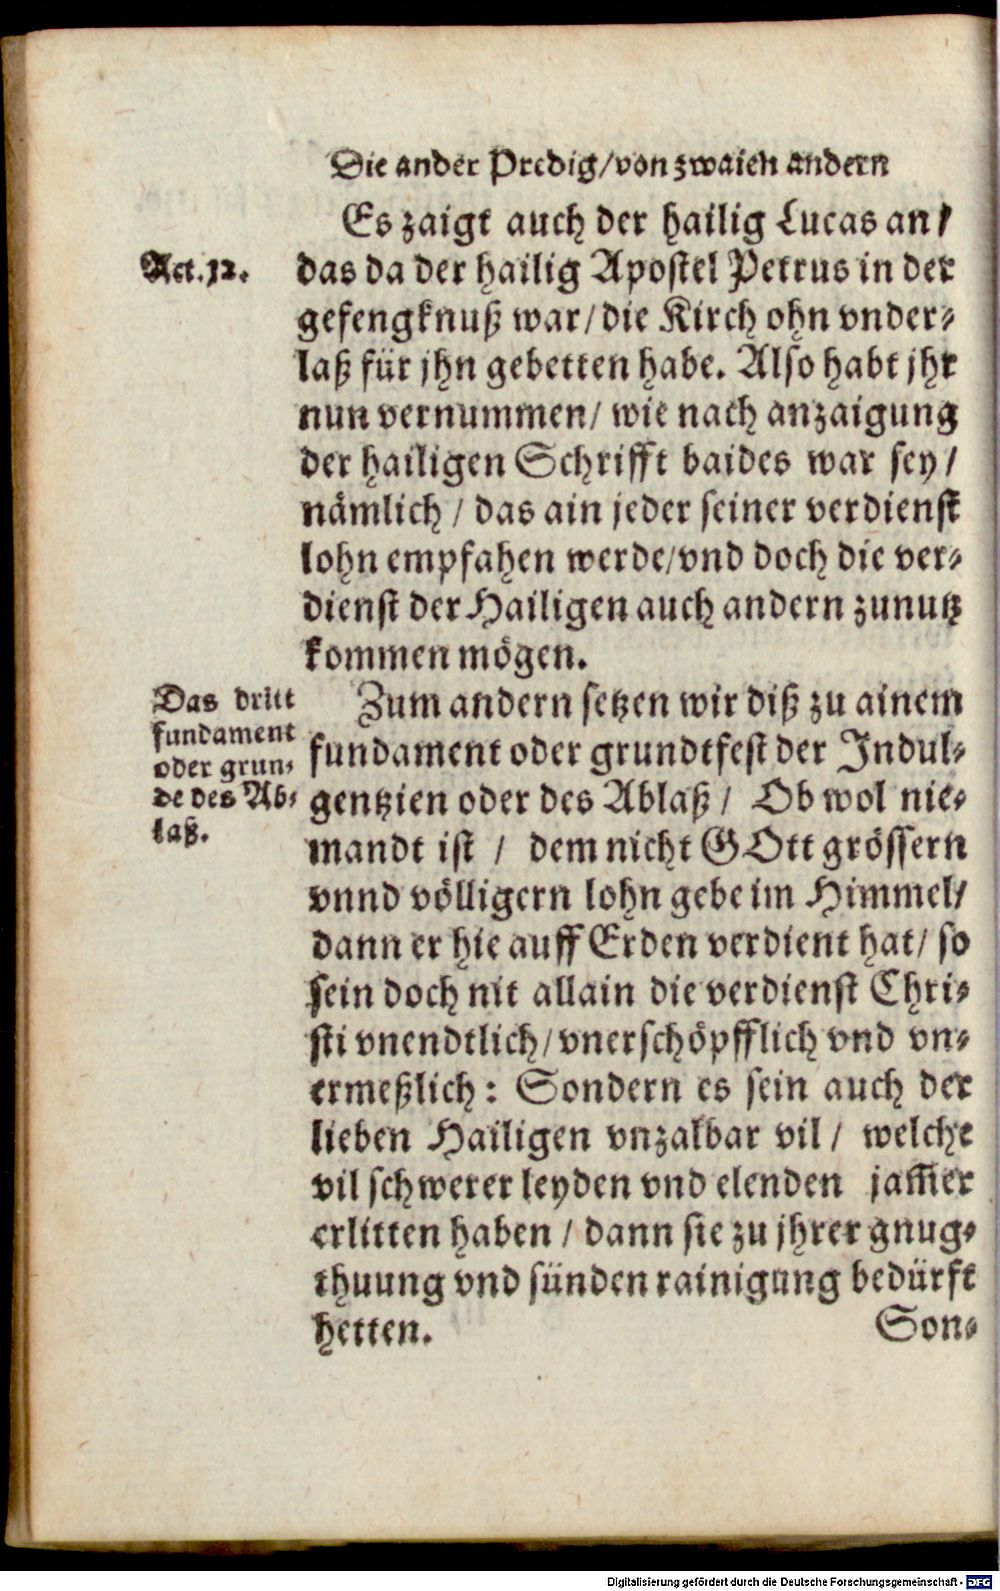 Die ander Predig/von zwaien andern
Es zaigt auch der hailig Lucas an/
Act. 12.
das da der hailig Apostel Petrus in der
gefengknuß war/die Kirch ohn vnder-
laß für jhn gebetten habe. Also habt jhr
nun vernummen/ wie nach anzaigung
der hailigen Schrifft baides war sey/
nämlich / das ain jeder seiner verdienst
lohn empfahen werde/vnd doch die ver-
dienst der Hailigen auch andern zunutz
kommen mögen.
Das dritt
fundament
oder grun-
de des Ab-
laß.
Zum andern setzen wir diß zu ainem
fundament oder grundtfest der Indul-
gentzien oder des Ablaß / Ob wol nie-
mandt ist / dem nicht GOtt grössern
vnnd völligern lohn gebe im Himmel/
dann er hie auff Erden verdient hat/ so
sein doch nit allain die verdienst Chri-
sti vnendtlich/vnerschöpfflich vnd vn-
ermeßlich: Sondern es sein auch der
lieben Hailigen vnzalbar vil / welche
vil schwerer leyden vnd elenden jam̄er
erlitten haben / dann sie zu jhrer gnug-
thuung vnd sünden rainigung bedürft
hetten.
Son-
Digitalisierung gefördert durch die Deutsche Forschungsgemeinschaft - DFG